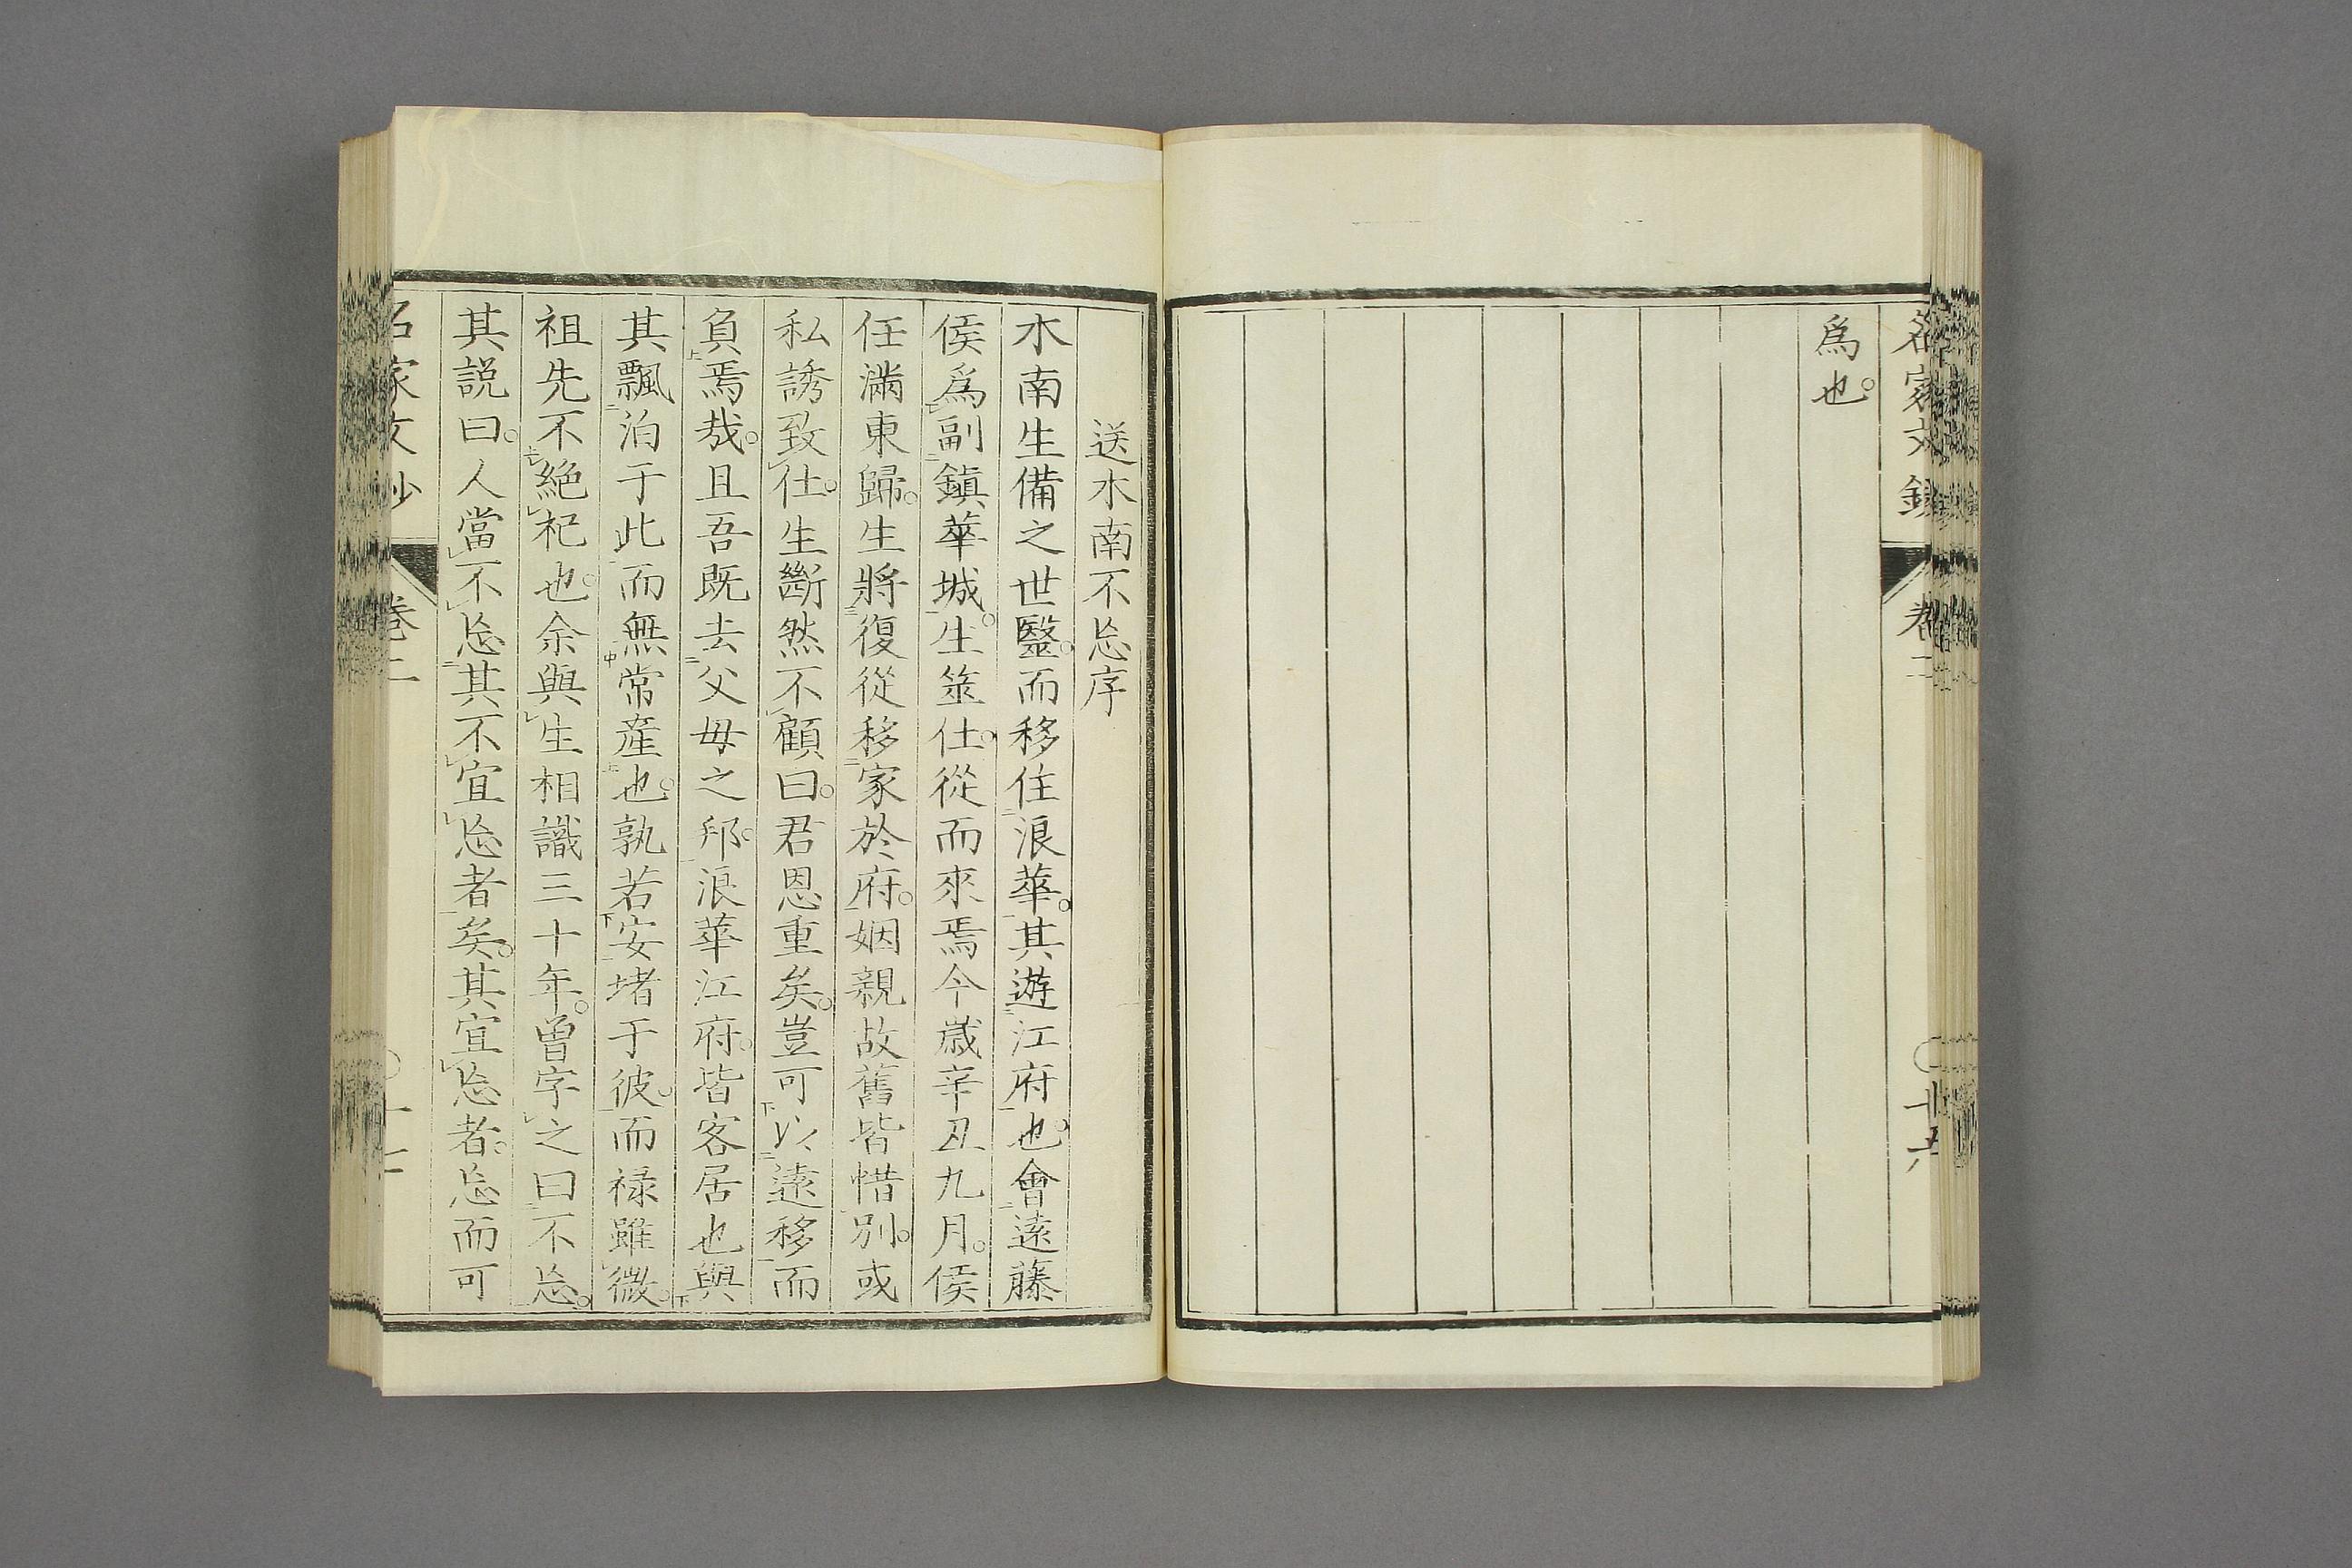 名家文鈔 卷二
爲也。
送水南不忘序
水南生備之世醫。而移住浪華。其遊江府也。會遠藤
侯爲副鎮華城。生筮仕。從而來焉今歲辛丑九月。侯
任滿東歸。生將復從移家於府。姻親故舊皆惜別。或
私誘致仕。生斷然不顧曰。君恩重矣。豈可以遠移而
負焉哉。且吾既去父母之邦。浪華江府。皆客居也與
其飄泊于此而無常産也。孰若安堵于彼。而祿雖微。
祖先不絕杞也。余與生相識三十年。曾字之曰不忘。
其説曰。人當不忘其不宜忘者矣。其宜忘者。忘而可
名家文鈔 卷二